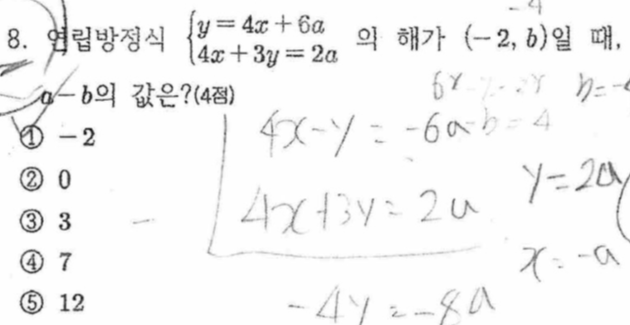 8. 연립방정식 { y = 4x + 6a
4x + 3y = 2a 의 해가 (-2, b)일 때,
a - b의 값은?(4점)
① -2
② 0
③ 3
④ 7
⑤ 12
-4
4x - y = -6a
4x + 3y = 2a
-4y = -8a
y = 2a
x = -a